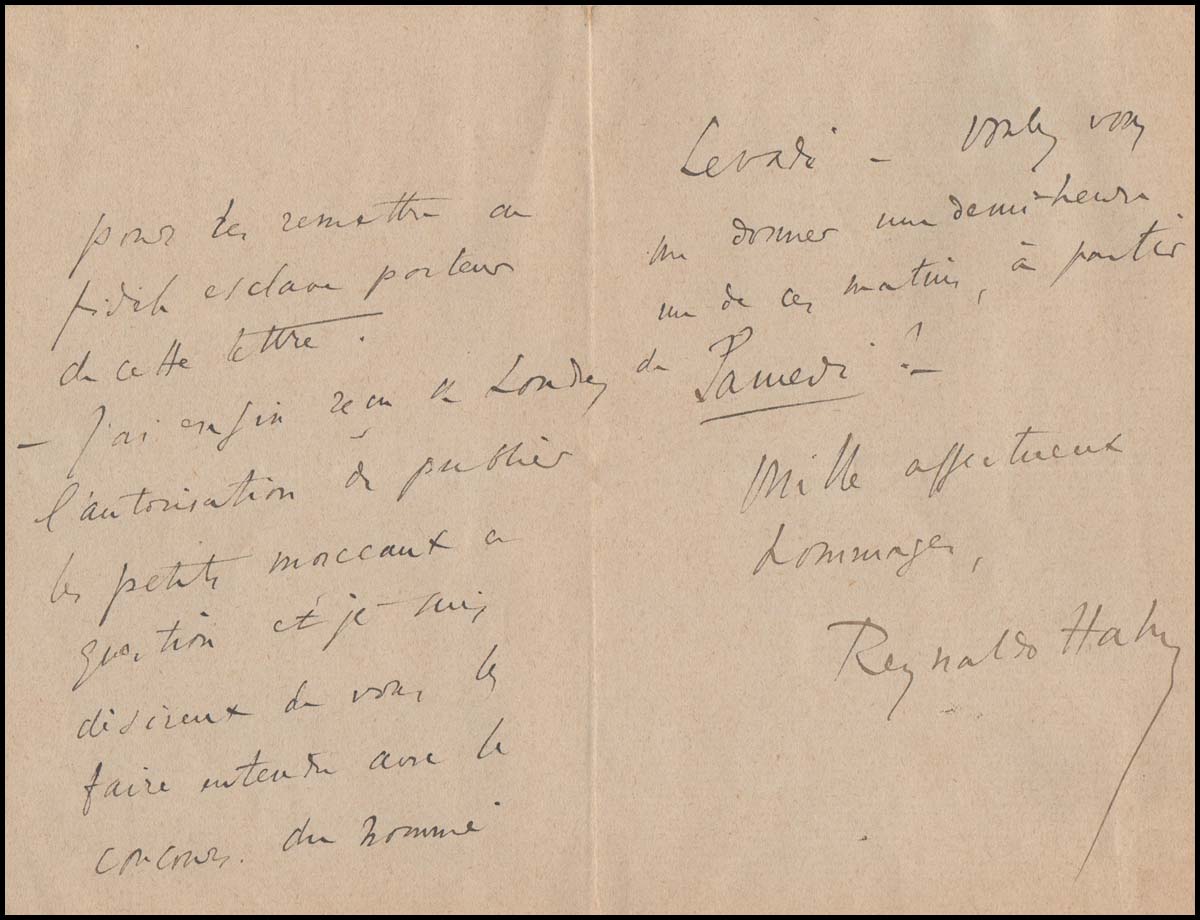 pour les remettre au
fidèle esclave porteur
de cette lettre.
— J'ai enfin reçu de Londres
l'autorisation de publier
les petits morceaux en
question et je suis
désireux de vous les
faire entendre avec le
concours du nommé
Levadé — voulez vous
me donner une demi-heure
un de ces matins, à partir
de Samedi ? —
Mille affectueux
hommages,
Reynaldo Hahn